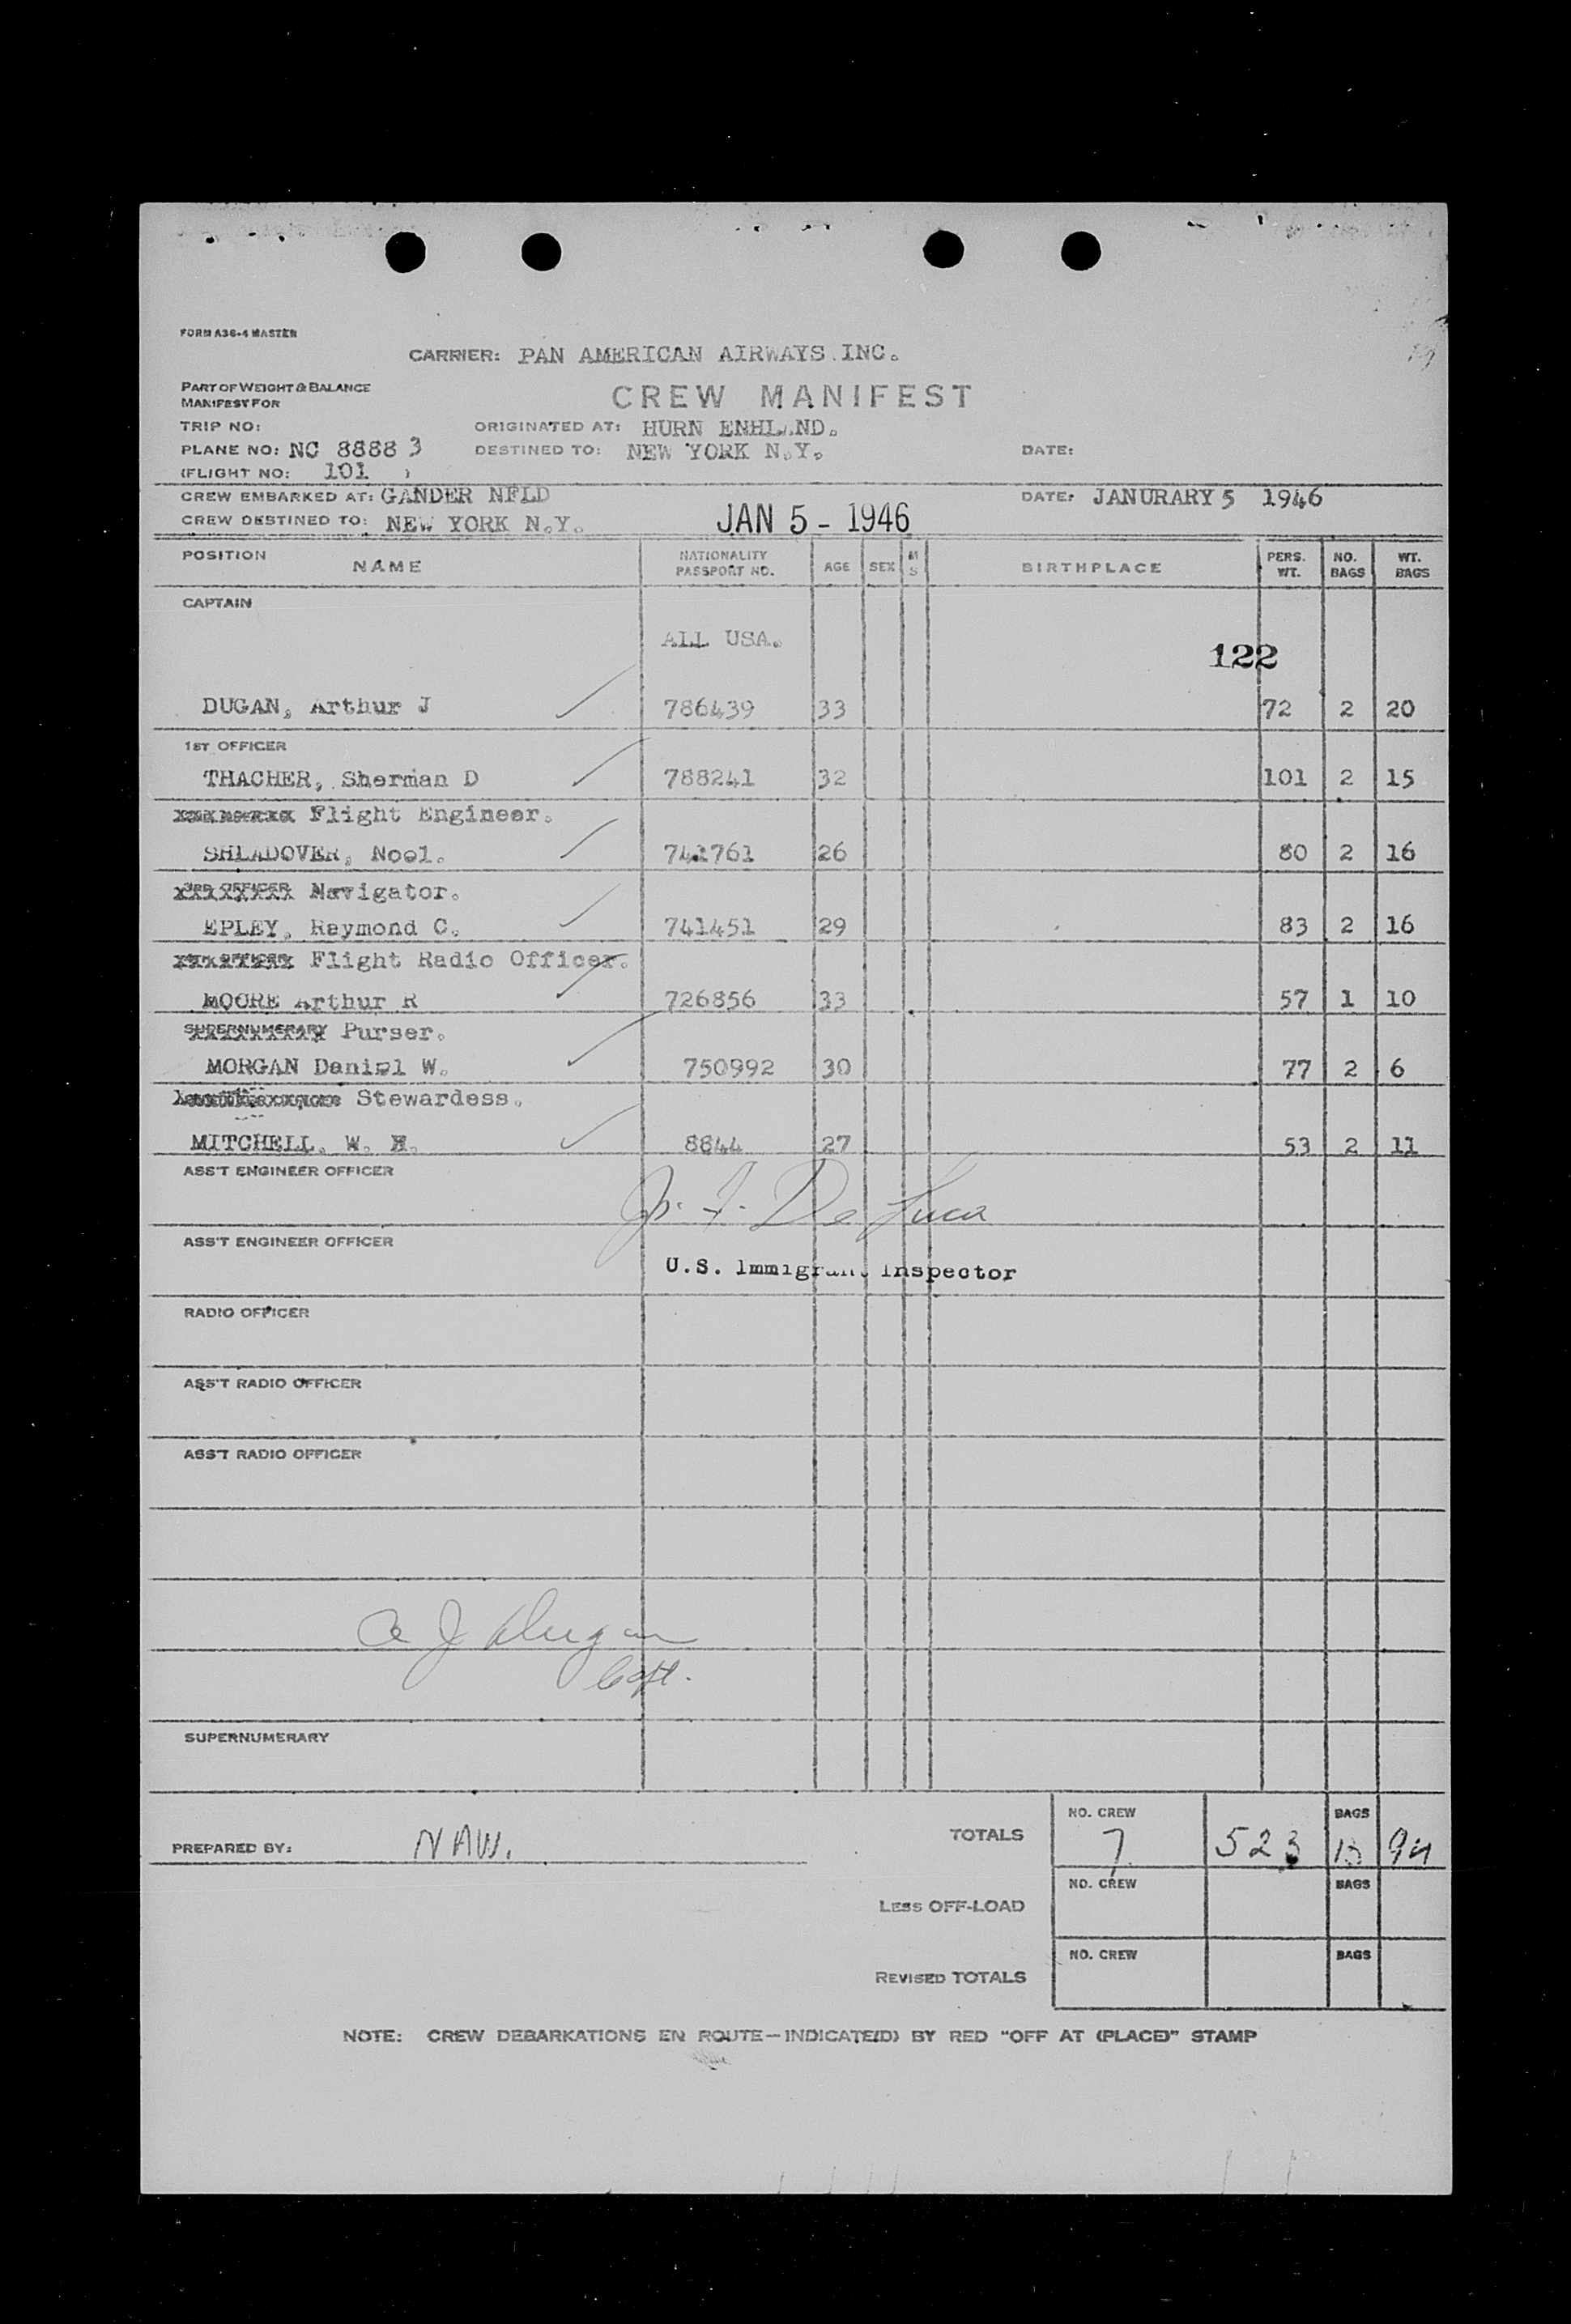 FORM A36-4 MASTER
CARRIER: PAN AMERICAN AIRWAYS INC.
PART OF WEIGHT & BALANCE
MANIFEST FOR
CREW MANIFEST
TRIP NO: ORIGINATED AT: HURN ENHLAND.
PLANE NO: NC 8888 3 DESTINED TO: NEW YORK N.Y. DATE:
(FLIGHT NO: 101 )
CREW EMBARKED AT: GANDER NFLD DATE: JANURARY 5 1946
CREW DESTINED TO: NEW YORK N.Y. JAN 5 - 1946
POSITION NAME NATIONALITY PASSPORT NO. AGE SEX M S BIRTHPLACE PERS. WT. NO. BAGS WT. BAGS
CAPTAIN
ALL USA.
122
DUGAN, Arthur J 786439 33 72 2 20
1ST OFFICER
THACHER, Sherman D 788241 32 101 2 15
Flight Engineer.
SHLADOVER, Noel. 741761 26 80 2 16
3RD OFFICER Navigator.
EPLEY, Raymond C. 741451 29 83 2 16
Flight Radio Officer.
MOORE Arthur R 726856 33 57 1 10
SUPERNUMERARY Purser.
MORGAN Daniel W. 750992 30 77 2 6
Stewardess.
MITCHELL. W. H. 8844 27 53 2 11
ASS'T ENGINEER OFFICER
De Luca
ASS'T ENGINEER OFFICER
U.S. Immigrant Inspector
RADIO OFFICER
ASS'T RADIO OFFICER
ASS'T RADIO OFFICER
A J Dugan
Capt.
SUPERNUMERARY
PREPARED BY: NAW. TOTALS NO. CREW 7 523 BAGS 13 94
LESS OFF-LOAD NO. CREW BAGS
REVISED TOTALS NO. CREW BAGS
NOTE: CREW DEBARKATIONS EN ROUTE—INDICATE(D) BY RED "OFF AT (PLACE)" STAMP